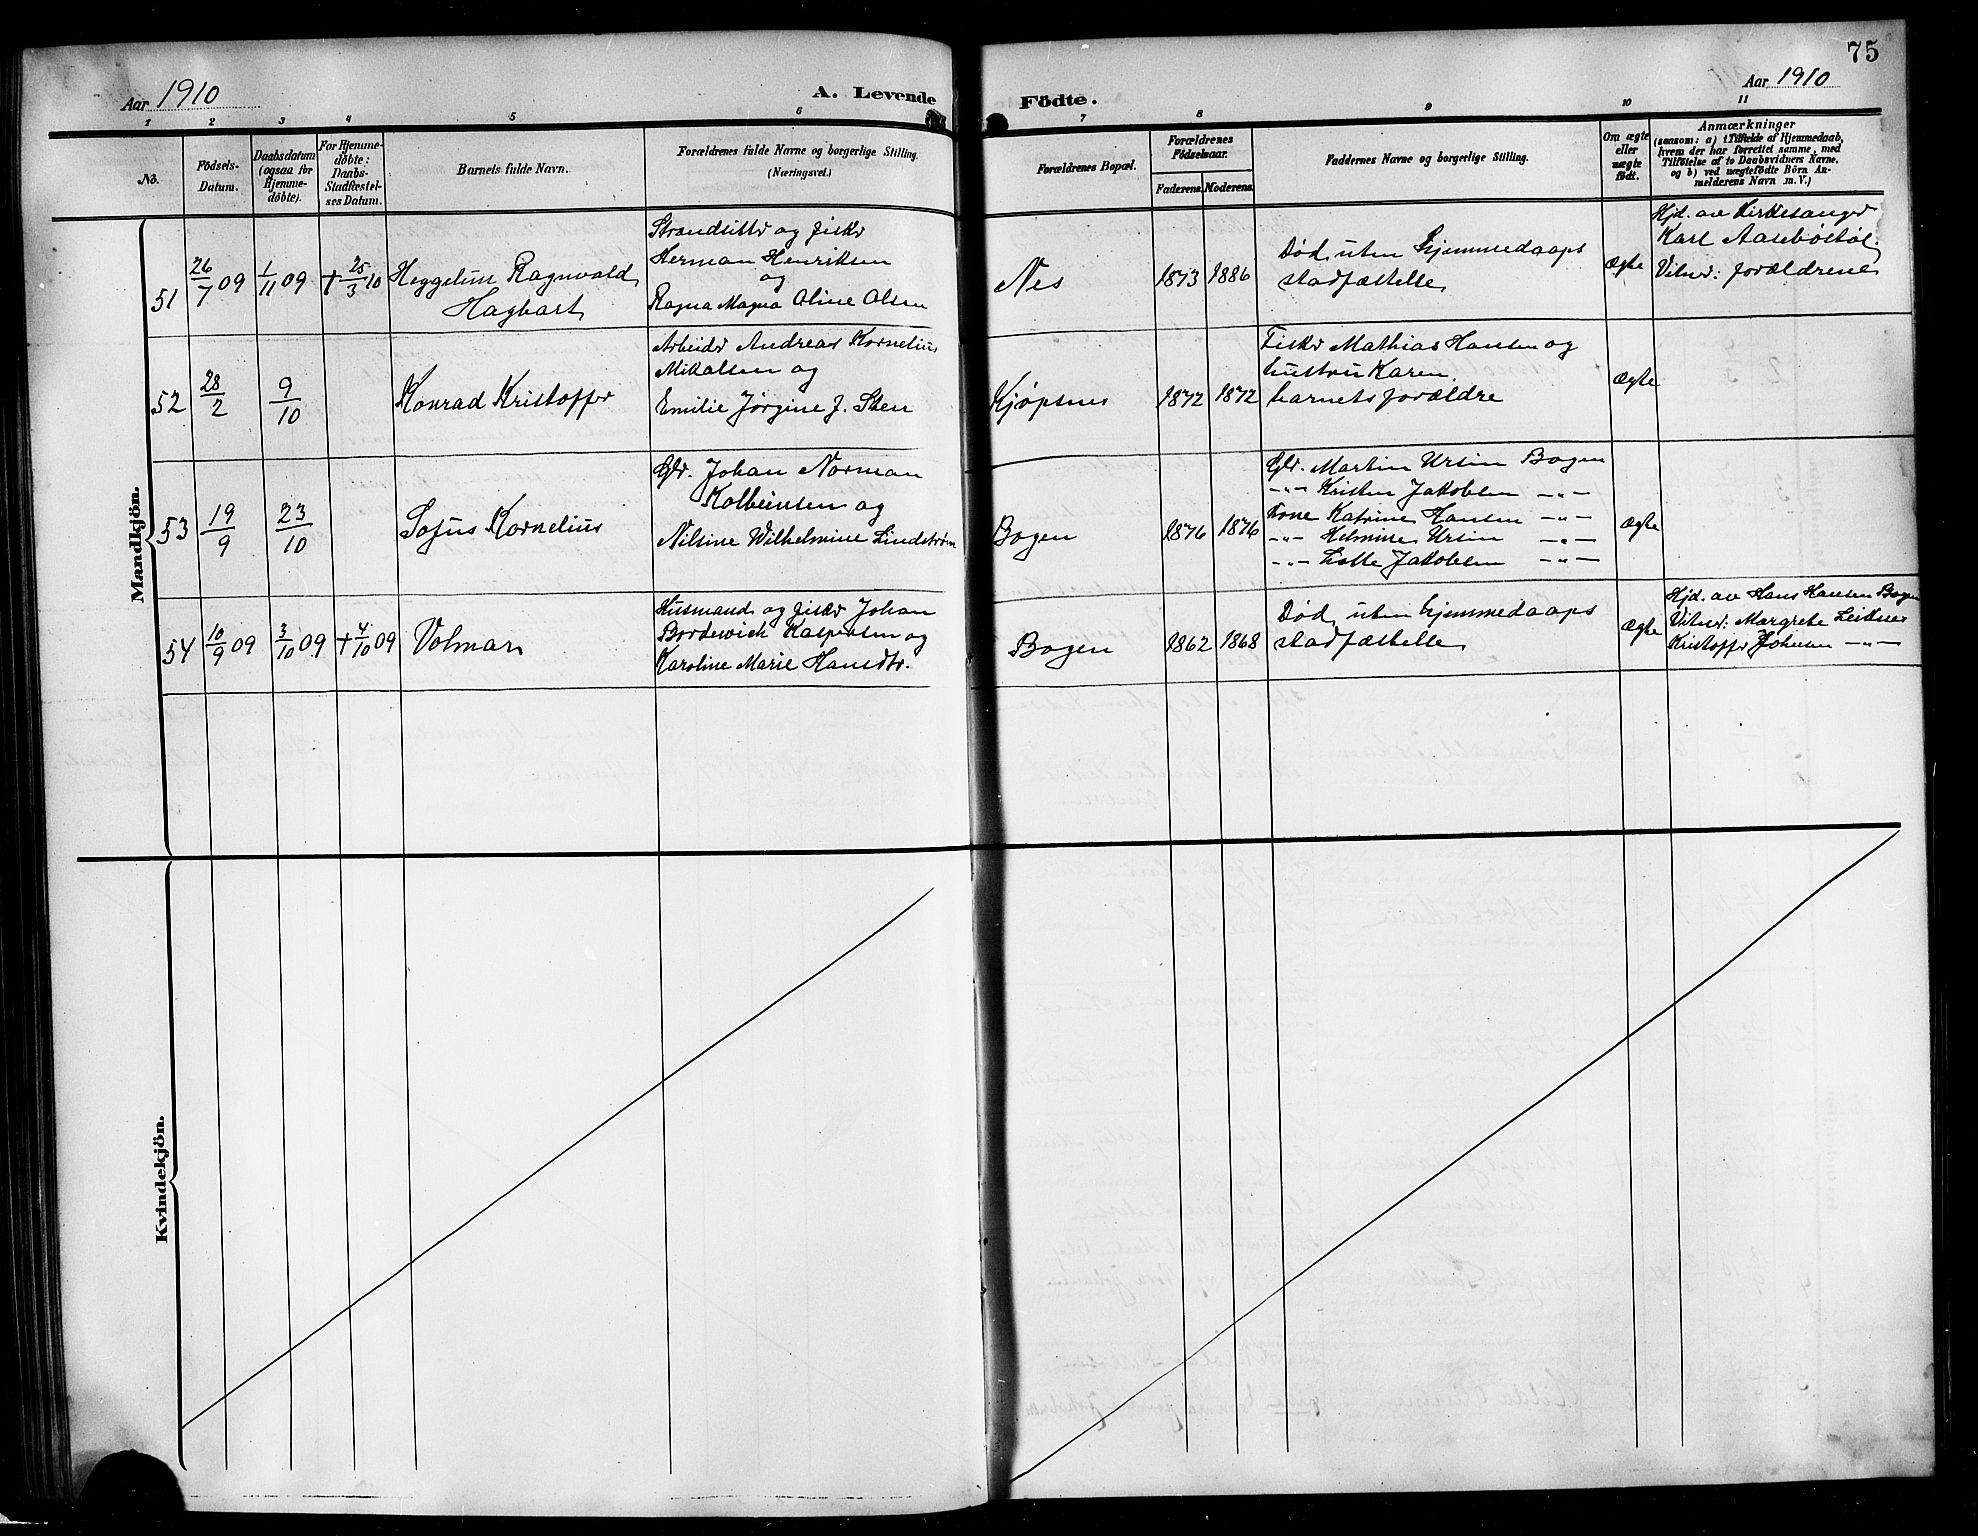 75
Aar 1910
A. Levende
Födte.
Aar 1910
1 2 3 4 5 6 7 8 9 10 11
No.
Födsels-
Datum.
Daabsdatum
(ogsaa for
Hjemme-
döbte).
For Hjemme-
döbte:
Daabs-
Stadfæstel-
ses Datum.
Barnets fulde Navn.
Forældrenes fulde Navne og borgerlige Stilling.
(Næringsvei.)
Forældrenes Bopæl.
Forældrenes
Födselsaar.
Faderens. Moderens.
Faddernes Navne og borgerlige Stilling.
Om ægte
eller
uægte
födt.
Anmærkninger
(saasom: a) i Tilfælde af Hjemmedaab,
hvem der har forrettet samme, med
Tilföielse af to Daabsvidners Navne,
og b) ved uægtefödte Börn An-
melderens Navn m. V.)
Mandkjön.
51
26/7 09
1/11 09
+ 25/3 10
Heggelun Ragnvald
Hagbart
Strandsitter og fisker
Herman Henriksen
og
Ragna Magna Oline Olsen
Nes
1873
1886
Død uten hjemmedaaps
stadfæstelse
ægte
Hjd. av Kirkesanger
Karl Aasebøstøl.
Vitner: forældrene
52
28/2
9/10
Konrad Kristoffer
Arbeider Andreas Kornelius
Mikalsen og
Emilie Jørgine J. Steen
Kjøpsnes
1872
1872
Fisker Mathias Hansen og
hustru Karen,
barnets forældre
ægte
53
19/9
23/10
Sofus Kornelius
Gbr. Johan Norman
Kolbeinsen og
Nilsine Wilhelmine Lindstrøm
Bogen
1876
1876
Gbr. Martin Ursin Bogen
-"- Kristen Jakobsen -"-
Kone Katrine Hansen -"-
-"- Helmine Ursin -"-
-"- Lotte Jakobsen -"-
ægte
54
10/9 09
3/10 09
+ 4/10 09
Volmar
Husmand og fisker Johan
Bordewich Kaspersen og
Karoline Marie Hansdtr.
Bogen
1862
1868
Død uten hjemmedaaps
stadfæstelse
ægte
Hjd. av Hans Hansen Bogen
Vitner: Margrete Leiknes
Kristoffer Johnsen -"-
Kvindekjön.